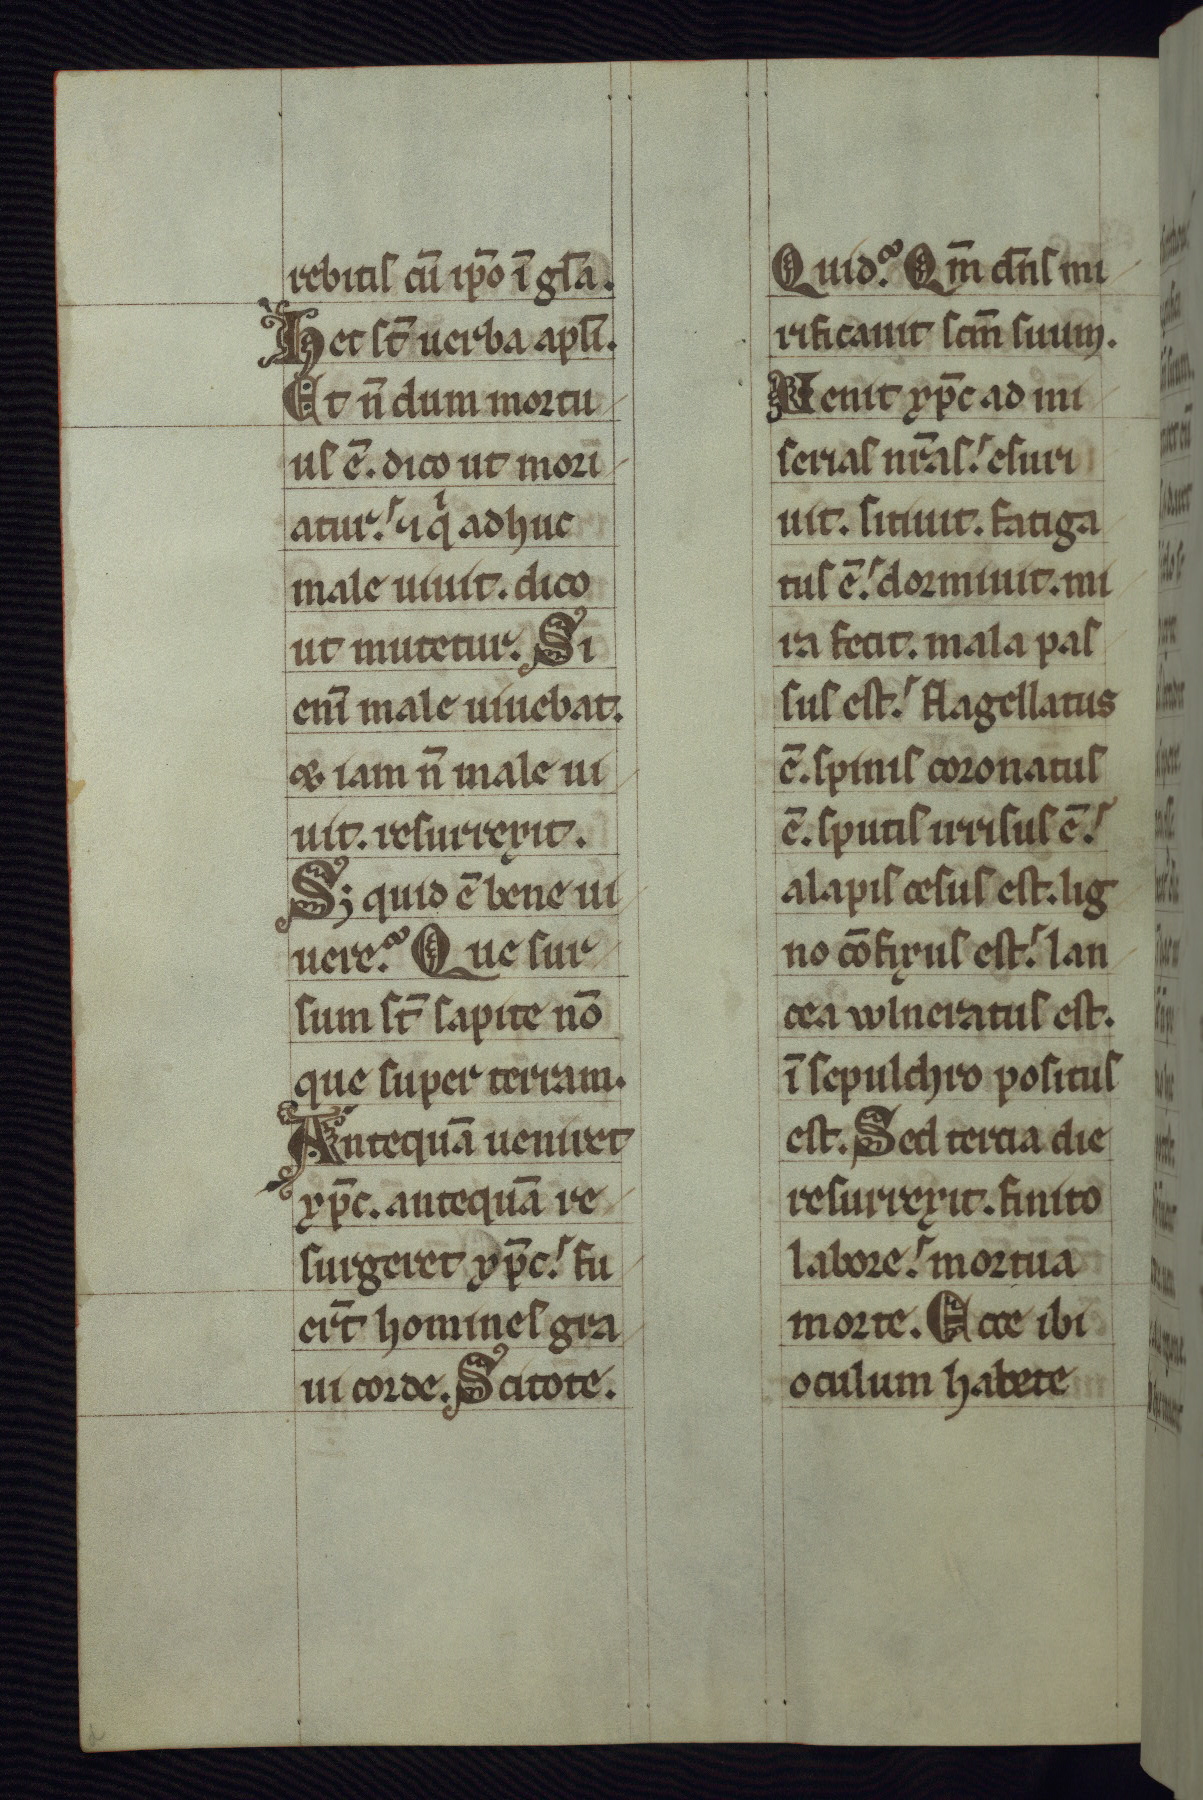 rebitis cū ip̄o ī gl̄a.
Hec st̄ uerba apl̄i.
Et n̄ dum mortu
us ē. dico ut mori
atur. ⁊ qͥ adhuc
male uiuit. dico
ut mutetur. Si
eni̅ male uiuebat.
⁊ iam n̄ male ui
uit. resurrexit.
Sꝫ quid ē bene ui
uere? Que sur
sum st̄ sapite nō
que super terram.
Antequā ueniret
xp̄c. antequā re
surgeret xp̄c. fu
er̄t homines gra
ui corde. Scitote.
Quid? Qm̄ dn̄s mi
rificauit scm̄ suum.
Uenit xp̄c ad mi
serias nr̄as. esuri
uit. sitiuit. fatiga
tus ē. dormiuit. mi
ra fecit. mala pas
sus est. flagellatus
ē. spinis coronatus
ē. sputis irrisus ē.
alapis cesus est. lig
no cōfixus est. lan
cea wlneratus est.
ī sepulchro positus
est. Sed tercia die
resurrexit. finito
labore. mortua
morte. Ecce ibi
oculum habete